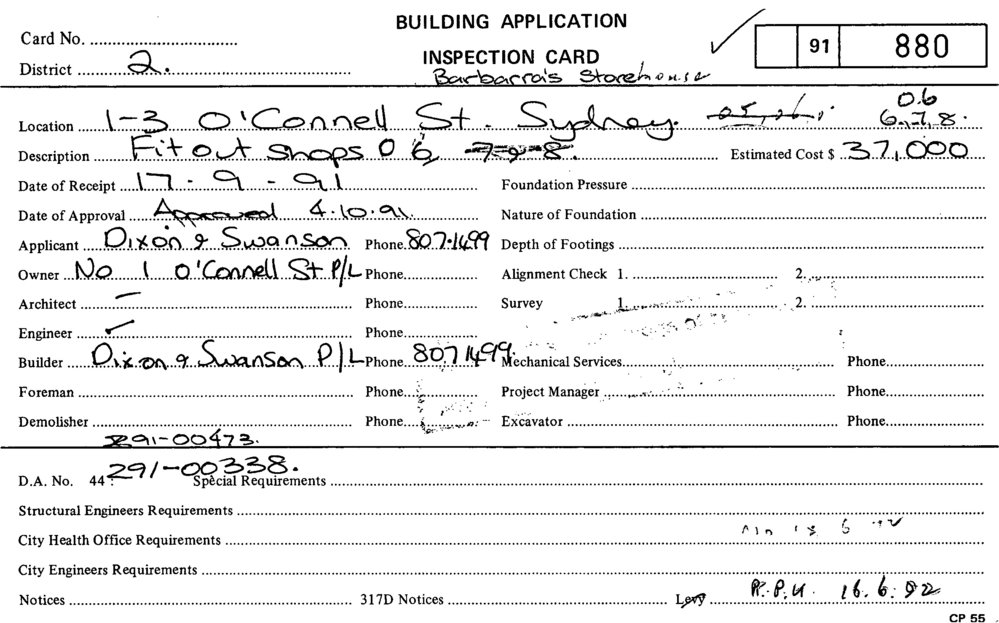 BUILDING APPLICATION
Card No.
91 880
INSPECTION CARD
District 2.
Barbarra's Storehouse
06
Location 1-3 O'Connell St. Sydney. 6.7.8.
Description Fit out shops 06 7 & 8. Estimated Cost $ 37,000
Date of Receipt 17-9-91 Foundation Pressure
Date of Approval Approved 4.10.91. Nature of Foundation
Applicant Dixon & Swanson Phone. 807-1499 Depth of Footings
Owner No 1 O'Connell St P/L Phone. Alignment Check 1. 2.
Architect – Phone. Survey 1. 2.
Engineer Phone.
Builder Dixon & Swanson P/L Phone. 8071499. Mechanical Services. Phone.
Foreman Phone. Project Manager Phone.
Demolisher Phone. Excavator Phone.
291-00473.
D.A. No. 44 291-00338. Special Requirements
Structural Engineers Requirements
City Health Office Requirements
City Engineers Requirements
Notices 317D Notices Levy R.P.U. 16.6.92
CP 55